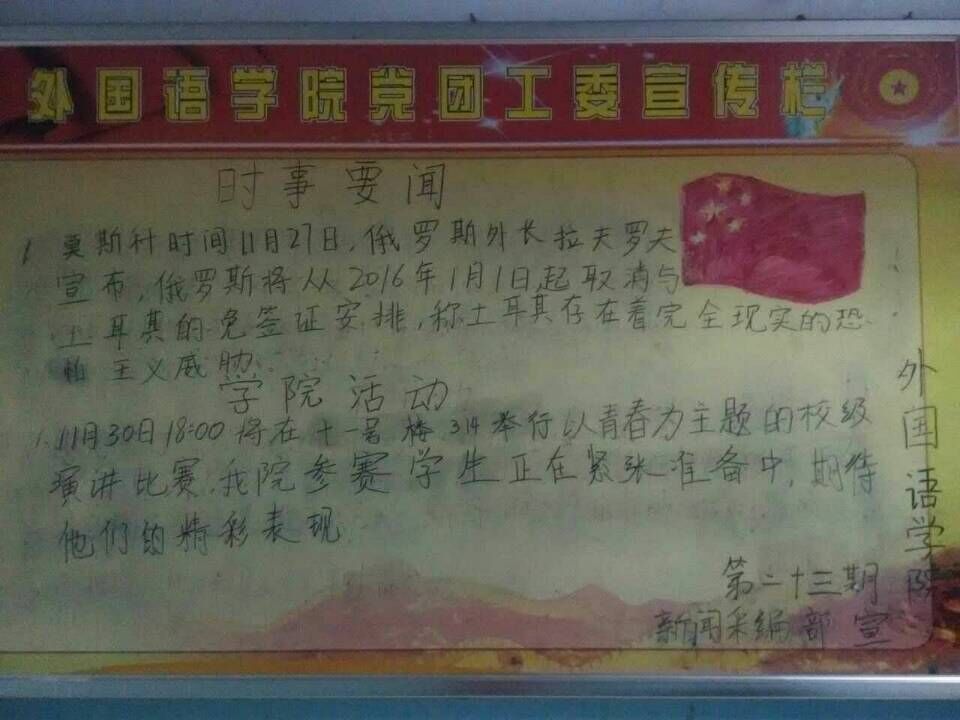 外国语学院党团工委宣传栏
时事要闻
1. 莫斯科时间11月27日,俄罗斯外长拉夫罗夫
宣布,俄罗斯将从2016年1月1日起取消与
土耳其的免签证安排,称土耳其存在着完全现实的恐
怕主义威胁.
学院活动
1. 11月30日18:00将在十一号楼314举行以青春为主题的校级
演讲比赛,我院参赛学生正在紧张准备中,期待
他们的精彩表现
第二十三期
新闻采编部宣
外国语学院